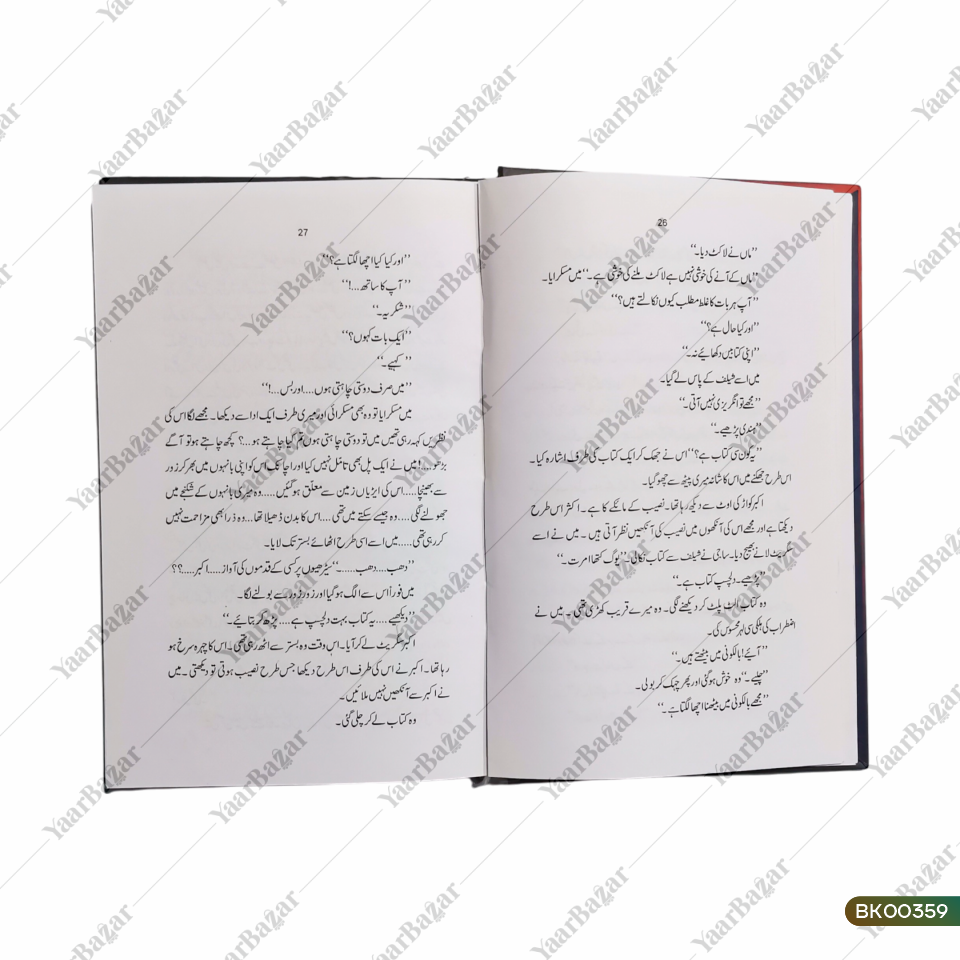 26
”ماں نے لاکٹ دیا۔“
”ماں کے آنے کی خوشی نہیں ہے لاکٹ ملنے کی خوشی ہے۔“ میں مسکرایا۔
”آپ ہر بات کا غلط مطلب کیوں نکالتے ہیں؟“
”اور کیا حال ہے؟“
”اپنی کتابیں دکھائیے نہ۔“
میں اسے شیلف کے پاس لے گیا۔
”مجھے تو انگریزی نہیں آتی۔“
”ہندی پڑھیے۔“
”یہ کون سی کتاب ہے؟“ اس نے جھک کر ایک کتاب کی طرف اشارہ کیا۔
اس طرح جھکنے میں اس کا شانہ میری پیٹھ سے چھو گیا۔
اکبر کواڑ کی اوٹ سے دیکھ رہا تھا۔ نصیب کے مائکے کا ہے۔ اکثر اس طرح
دیکھتا ہے اور مجھے اس کی آنکھوں میں نصیب کی آنکھیں نظر آتی ہیں۔ میں نے اسے
سگریٹ لانے بھیج دیا۔ ساجی نے شیلف سے کتاب نکالی۔ ”یوگ کتھا امرت۔“
”پڑھیے۔ دلچسپ کتاب ہے۔“
وہ کتاب الٹ پلٹ کر دیکھنے لگی۔ وہ میرے قریب کھڑی تھی۔ میں نے
اضطراب کی ہلکی سی لہر محسوس کی۔
”آیئے! بالکونی میں بیٹھتے ہیں۔“
”چلیے۔“ وہ خوش ہو گئی اور پھر چہک کر بولی۔
”مجھے بالکونی میں بیٹھنا اچھا لگتا ہے۔“
27
”اور کیا کیا اچھا لگتا ہے؟“
”آپ کا ساتھ...!“
”شکریہ۔“
”ایک بات کہوں؟“
”کہیے۔“
”میں صرف دوستی چاہتی ہوں....اور بس...!“
میں مسکرایا تو وہ بھی مسکرائی اور میری طرف ایک ادا سے دیکھا۔ مجھے لگا اس کی
نظریں کہہ رہی تھیں میں تو دوستی چاہتی ہوں تم کیا چاہتے ہو...؟ کچھ چاہتے ہو تو آگے
بڑھو....! میں نے ایک پل بھی تامل نہیں کیا اور اچانک اس کو اپنی بانہوں میں بھر کر زور
سے بھینچا.....اس کی ایڑیاں زمین سے معلّق ہو گئیں.....وہ میری بانہوں کے شکنجے میں
جھولنے لگی....وہ جیسے سکتے میں تھی....اس کا بدن ڈھیلا تھا...وہ ذرا بھی مزاحمت نہیں
کر رہی تھی.....میں اسے اسی طرح اٹھائے بستر تک لایا۔
”دھب...دھب.....“ سیڑھیوں پر کسی کے قدموں کی آواز.....اکبر.....؟؟
میں فوراً اس سے الگ ہو گیا اور زور زور سے بولنے لگا۔
”دیکھیے....یہ کتاب بہت دلچسپ ہے....پڑھ کر بتائیے۔“
اکبر سگریٹ لے کر آیا۔ اس وقت وہ بستر سے اٹھ رہی تھی۔ اس کا چہرہ سرخ ہو
رہا تھا۔ اکبر نے اس کی طرف اس طرح دیکھا جس طرح نصیب ہوتی تو دیکھتی۔ میں
نے اکبر سے آنکھیں نہیں ملائیں۔
وہ کتاب لے کر چلی گئی۔
YaarBazar
BK00359